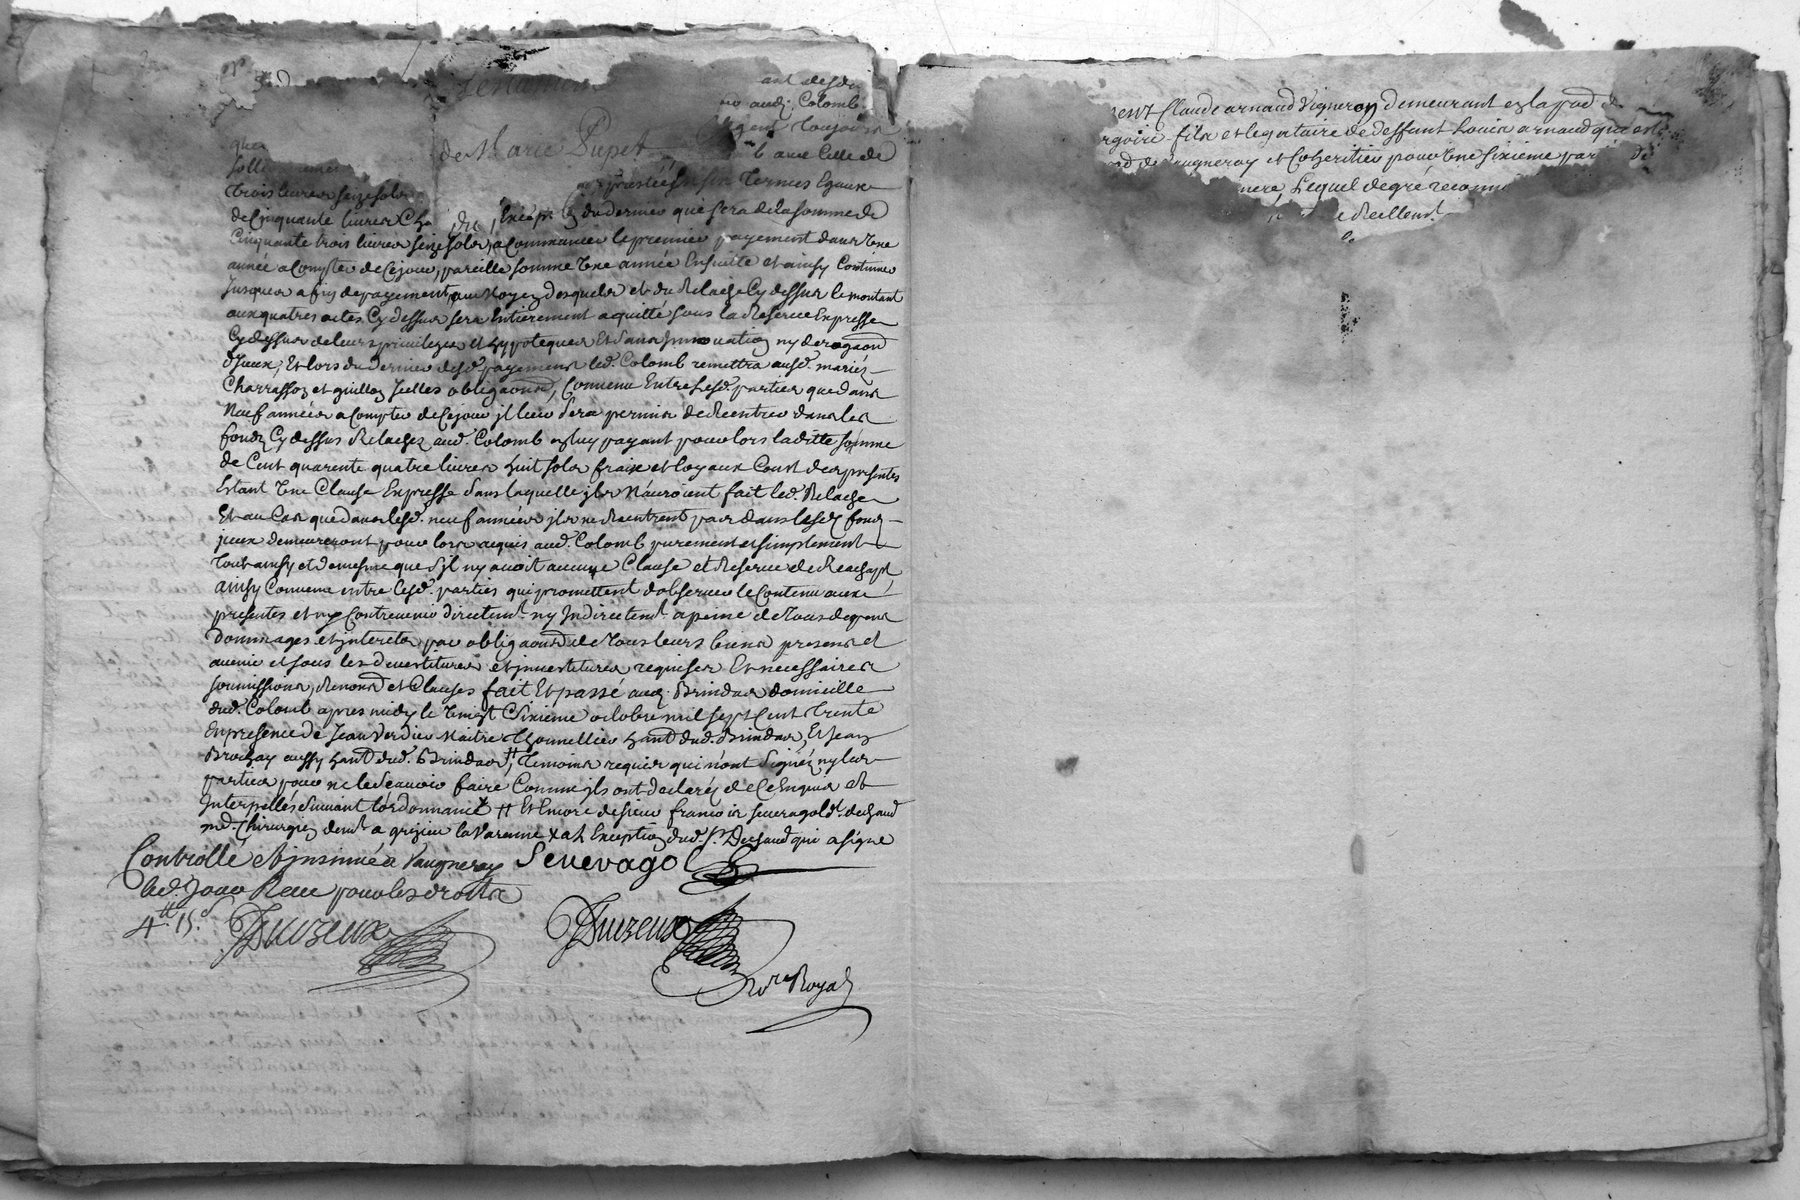 Testamen
de Marie Pupet
aud. Colomb
toujours
que
b avec Celle de
sollennemen
trois livres seize sols
termes Egaux
de Cinquante livres
Excepté du dernier que sera de la somme de
Cinquante trois livres seize sols, a Commancer le premier payement dans Une
année a Compter de Cejour, pareille somme Une année Ensuitte et ainsy Continuer
Jusques a fin de payement, au Moyen desquels et du Relache Cy dessus le montant
aux quatres actes Cy dessus sera Entierement aquitté sous la Reserve Expresse
Cy dessus de leurs privileges et hypoteques Et sans Innovation ny derogaon
d'Jceux, Et lors du dernier desd. payemens led. Colomb remettra ausd. mariés
Charrasson et guillon Jcelles obligaons, Convenu Entre Lesd. parties que dans
Neuf années a Compter de Cejour jl leur sera permis de Rentrer dans les
fonds Cy dessus Relachez aud. Colomb en luy payant pour lors laditte somme
de Cent quarente quatre livres huit sols fraix et loyaux Coust des presentes
Estant Une Clause Expresse sans laquelle jls n'auroient fait led. Relache
Et au Cas que dans lesd. neuf années jls ne Rentrent pas dans lesd. fonds
jceux demeureront pour lors acquis aud. Colomb purement et simplement
tout ainsy et de mesme que s'jl ny avoit aucune Clause et Reserve de Reachapt
ainsy Convenu entre lesd. parties qui promettent d'observer le Contenu aux
presentes et ny Contrevenir directemt. ny Indirectemt. a peine de tous depens
dommages et jnterets, par obligaon de tous leurs biens presens et
avenir et sous les devestitures et jnvestitures requises Et necessaires
soumissions, Renons et Clauses fait Et passé aud. Brindas domicille
dud. Colomb apres midy le Vingt Sixieme octobre mil sept Cent trente
En presence de Jean Verdier Maitre Thonnellier hant. dud. Brindas, Et Jean
Brochay aussy hant. dud. Brindas, ⸗ Temoins requis qui n'ont signéz ny les
parties pour ne le scavoir faire Comme jls ont declaréz de Ce Enquis et
Interpellés suivant l'ordonnance ⸗ Et Encore de sieur francois senevagol
md. Chirurgien demt. a grezieu la Varenne Exception dud. Sr. qui a signé
Controlle et jnsinué a Vaugneray Senevagol
led. Jour Receu pour les droits
4tt. 15s. Duizeux Duizeux
Nore. Royal
ment Claude arnaud Vigneron demeurant en la parr. de
rgoire fils et legataire de deffunt Louis arnaud qui est
Vaugneray et Coheritier pour Une sixieme partie de
mere, Lequel de gré reconn